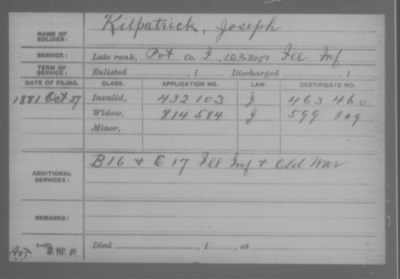 NAME OF SOLDIER: Kilpatrick, Joseph
SERVICE: Late rank, Pvt Co. I, 102 Reg't Ill Inf
TERM OF SERVICE: Enlisted , 1 Discharged , 1
DATE OF FILING. CLASS. APPLICATION NO. LAW. CERTIFICATE NO.
1881 Oct 27 Invalid, 432 103 J 463 460
Widow, 814 584 J 599 809
Minor,
ADDITIONAL SERVICES: B 16 & E 17 Ill Inf & Old War
REMARKS:
Died , 1 , at